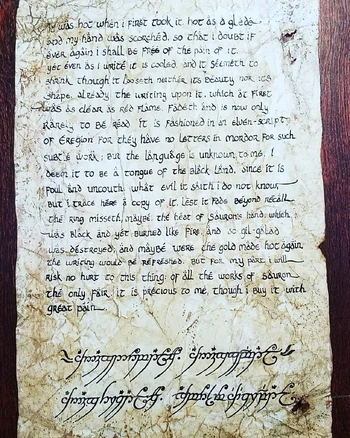 It was hot when i first took it hot as a glede
and my hand was scorched, so that i doubt if
ever again i shall be free of the pain of it.
yet even as i write it is cooled, and it seemeth to
shrink though it looseth neither its beauty nor its
shape. already the writing upon it, which at first
was as clear as red flame. fadeth and is now only
rarely to be read. It is fashioned in an elven-script
of Eregion for they have no letters in mordor for such
subtle work; but the language is unknown to me. I
deem it to be a tongue of the black land. since it is
foul and uncouth. what evil it saith i do not know
but i trace here a copy of it. lest it fade beyond recall
the ring misseth, maybe, the heat of saurons hand, which
was black and yet burned like fire, and so gil-galad
was destroyed; and maybe were the gold made hot again
the writing would be refreshed. but for my part i will
risk no hurt to this thing: of all the works of sauron
the only fair. it is precious to me, though i buy it with
great pain